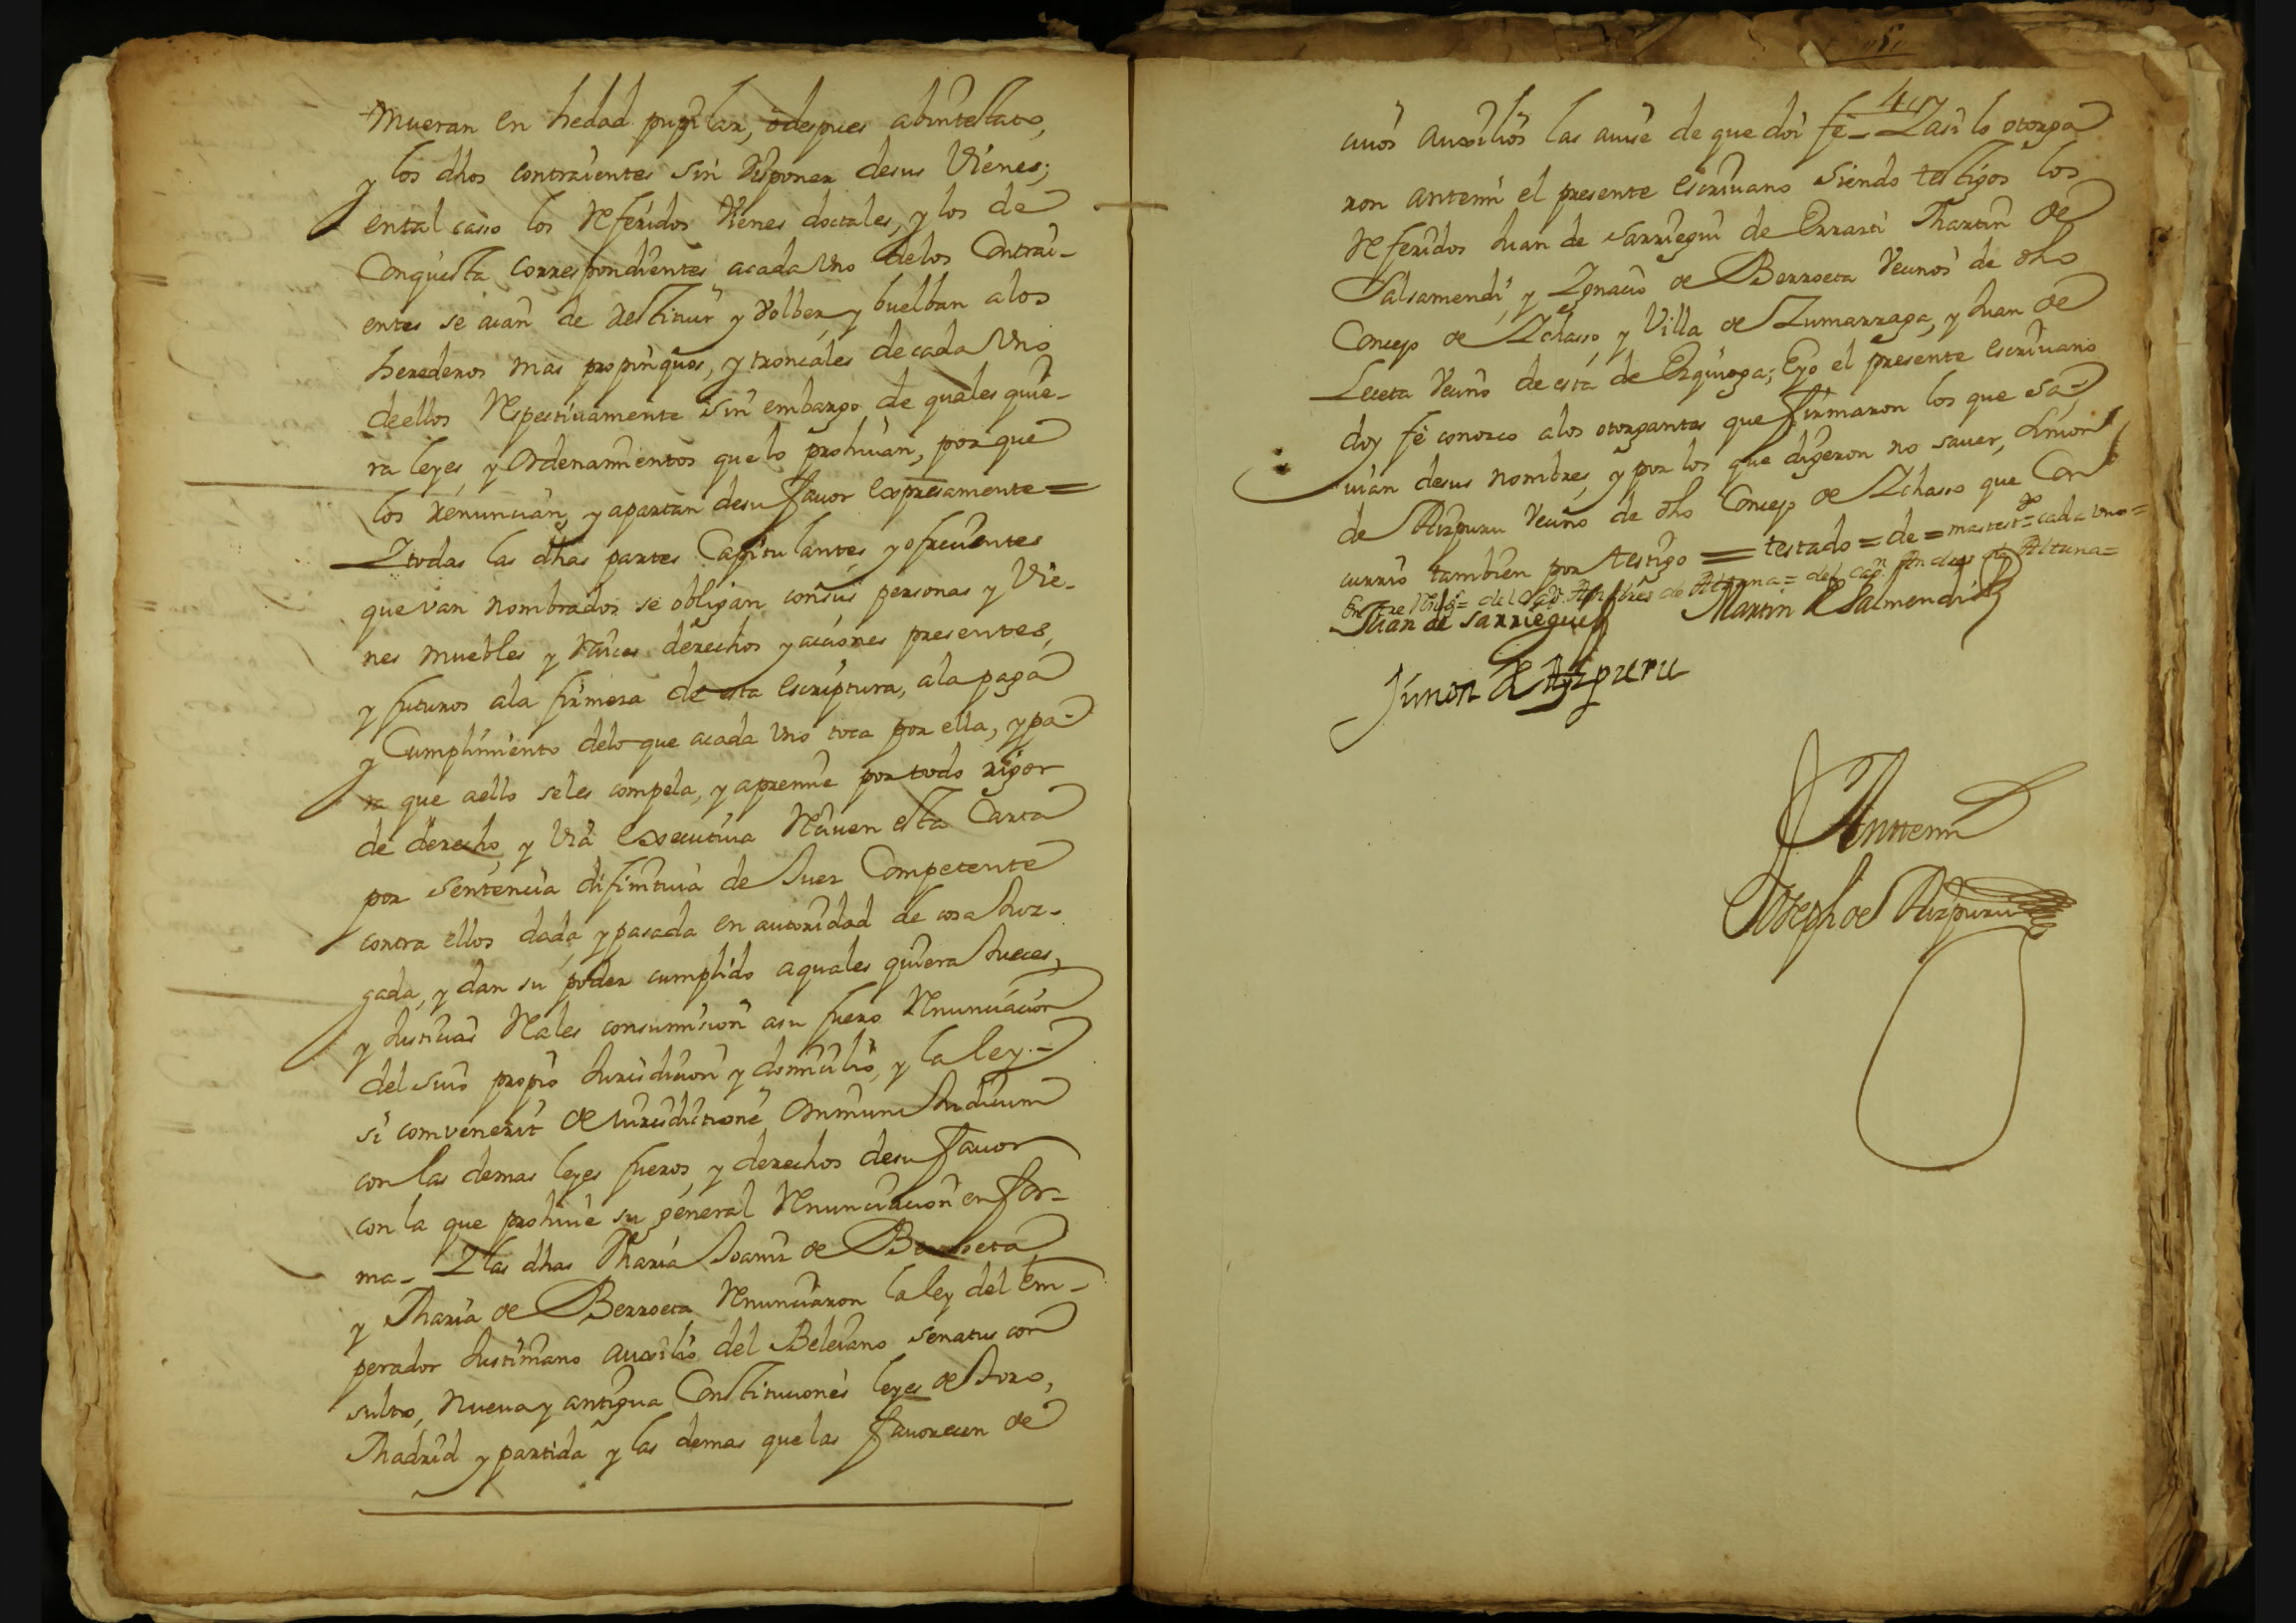 mueran en hedad pupilar, o despues abintestato,
y los dhos contraientes sin disponer desus Vienes;
ental casso los Referidos Vienes doctales, y los de
Conquista correspondientes acada Vno delos Contrai-
entes se aian de restituir y Volber, y buelban alos
herederos mas propinquos, y troncales decada Vno
deellos Respectiuamente sin embargo de quales quie-
ra leyes, y ordenamientos que lo prohiuan, porque
los renuncian, y apartan desu fauor expresamente =
Y todas las dhas partes Capitulantes, y ofrecientes
que van nombrados se obligan consus personas y Vie-
nes muebles y Raices derechos y aciones presentes,
y futuros ala firmesa de esta escriptura, ala paga
y Cumplimiento delo que acada Vno toca por ella, y pa-
ra que aello seles compela, y apremie por todo rigor
de derecho, y Via executiua Riciuen esta Carta
por sentencia difinitiua de Juez Competente
contra ellos dada, y pasada en autoridad de cosa Juz-
gada, y dan su poder cumplido aquales quiera Jueces,
y Justicias Reales consumision asu fuero Renunciacion
del suio propio Jurisdicion y domicilio, y la ley -
si comvenerit de iurisdictione Omnium Judicum
con las demas leyes fueros, y derechos desu fauor
con la que prohiue su general Renunciacion en for-
ma - Y las dhas Maria Joaniz de Berroeta
y Maria de Berroeta Renunciaron la ley del Em-
perador Justiniano auxilio del Beleiano senatus con
sulto, nueua y antigua Constituciones leyes de Toro,
Madrid y partida y las demas que las fauorecen de
407
cuios auxilios las auise de que doi fe - Y asi lo otorga
ron antemi el presente escriuano siendo testigos los
Referidos Juan de Sarriegui de Errasti Martin de
Salsamendi, y Ygnacio de Berroeta Vecinos de dho
Concejo de Ychasso, y Villa de Zumarraga, y Juan de
Leceta Vecino de esta de Ezquioga; Eyo el presente escriuano
doy fe conozco alos otorgantes que firmaron los que sa-
uian desus nombres, y por los que digeron no sauer, Simon
de Aizpuru Vecino de dho Concejo de Ychasso que Con
currio tambien por testigo = testado = de = mas test.do = cada vno =
Entre Rengs = del Cap.n Andres de Altuna = del Cap.n Andres de Altuna =
Juan de Sarriegui Martin de Salsmendi
Simon de Ayzpuru
Anttemi
Joseph de Aizpuru